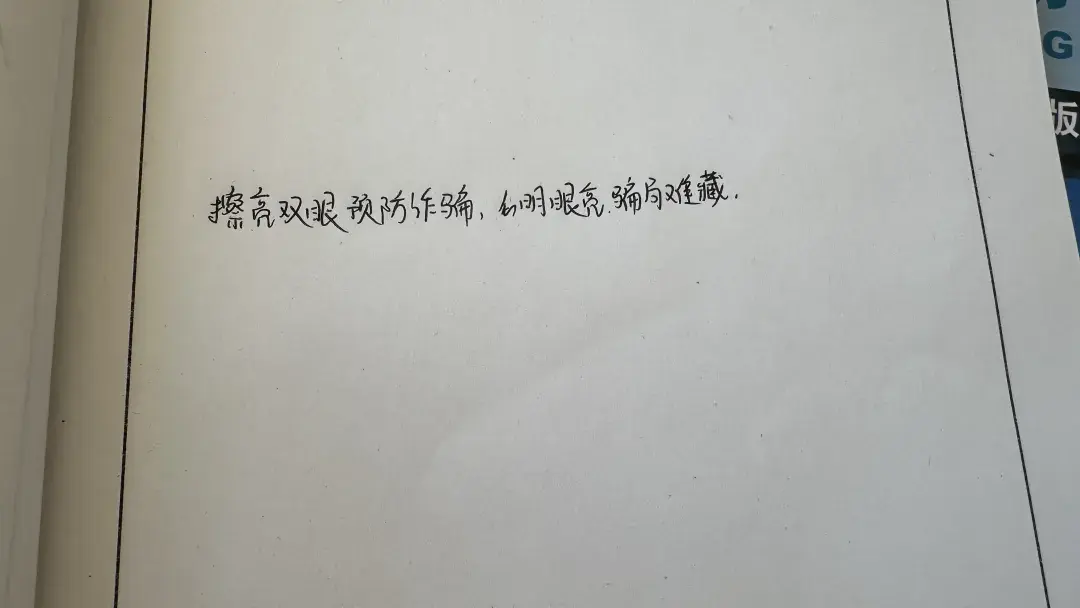 擦亮双眼预防诈骗，心明眼亮.骗局难藏.
G
版